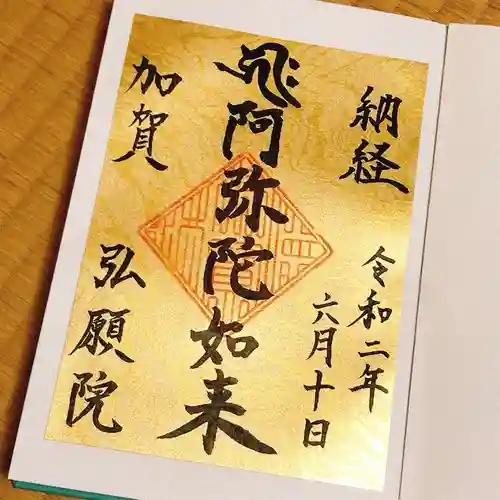 納経
令和二年
六月十日
阿弥陀如来
加賀
弘願院